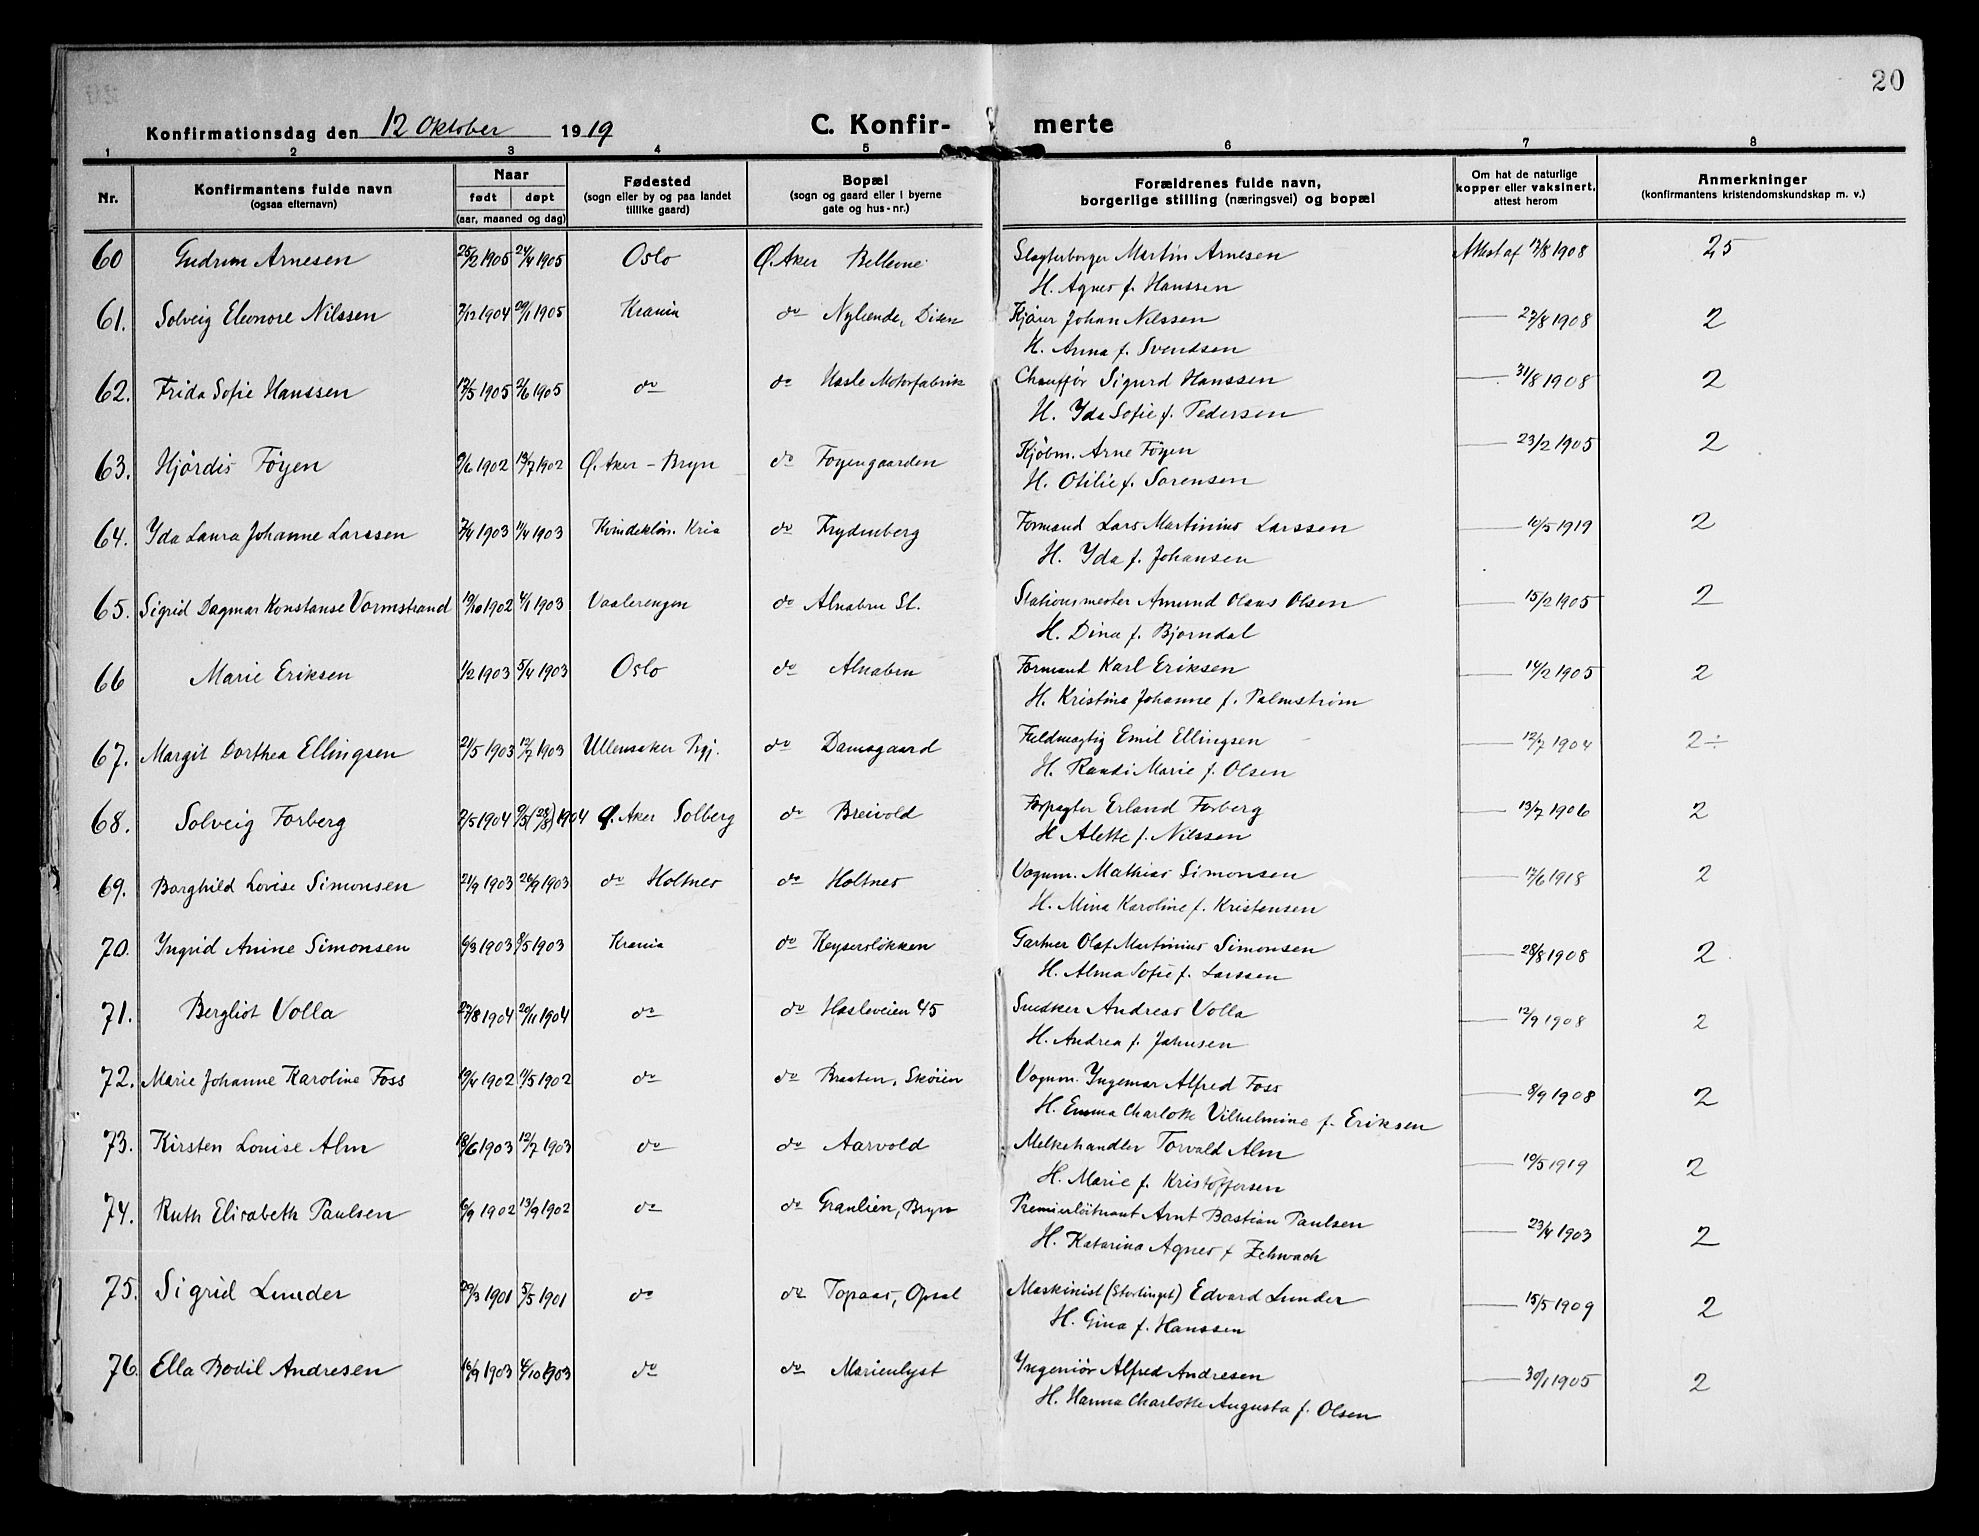 20
Konfirmationsdag den 12 Oktober 1919 C. Konfir- merte
1 2 3 4 5 6 7 8
Nr. Konfirmantens fulde navn (ogsaa efternavn) Naar født døpt (aar, maaned og dag) Fødested (sogn eller by og paa landet tillike gaard) Bopæl (sogn og gaard eller i byerne gate og hus-nr.) Forældrenes fulde navn, borgerlige stilling (næringsvei) og bopæl Om hat de naturlige kopper eller vaksinert, attest herom Anmerkninger (konfirmantens kristendomskundskap m. v.)
60 Gudrun Arnesen 25/2 1905 24/4 1905 Oslo Ø. Aker Bellevue Slagterborger Martin Arnesen Attest af 17/8 1908 25
H. Agnes f. Hanssen
61. Solveig Eleonore Nilssen 7/12 1904 29/1 1905 Krania do Nylænde, Disen Kjører Johan Nilssen — 27/8 1908 2
H. Anna f. Svendsen
62. Frida Sofie Hanssen 17/5 1905 2/6 1905 do do Hasle Motorfabrik Chauffør Sigurd Hanssen — 31/8 1908 2
H. Yda Sofie f. Pedersen
63. Hjördis Föyen 9/6 1902 13/7 1902 Ø. Aker - Bryn do Foyengaarden Kjöbm. Arne Föyen — 23/2 1905 2
H. Otilie f. Sorensen
64. Yda Laura Johanne Larssen 7/4 1903 11/4 1903 Kvindeklin. Kria do Frydenberg Formand Lars Martinius Larssen — 10/5 1919 2
H. Yda f. Johansen
65. Sigrid Dagmar Konstanse Vormstrand 19/10 1902 4/1 1903 Vaalerengen do Alnabru St. Stationsmester Amund Olaus Olsen — 15/2 1905 2
H. Dina f. Bjorndal
66 Marie Eriksen 1/2 1903 5/4 1903 Oslo do Alnabru Formand Karl Eriksen — 14/2 1905 2
H. Kristina Johanne f. Palmstrøm
67. Margit Dorthea Ellingsen 21/5 1903 12/7 1903 Ullensaker Prgj. do Damsgaard Fuldmægtig Emil Ellingsen — 12/7 1904 2÷
H. Randi Marie f. Olsen
68. Solveig Forberg 2/5 1904 9/5 (28/8) 1904 Ø. Aker Solberg do Breivold Forpagter Erland Forberg — 13/7 1906 2
H Alette f. Nilssen
69. Borghild Lovise Simonsen 21/9 1903 26/9 1903 do Holtnes do Holtnes Vognm. Mathias Simonsen — 17/6 1918 2
H. Mina Karoline f. Kristensen
70. Yngrid Anine Simonsen 6/3 1903 8/5 1903 Krania do Keysersløkken Gartner Olaf Martinius Simonsen — 28/8 1908 2
H. Alma Sofie f. Larssen
71. Bergliot Volla 27/8 1904 20/11 1904 do do Hasleveien 45 Snedker Andreas Volla — 12/9 1908 2
H. Andrea f. Jahnsen
72. Marie Johanne Karoline Foss 19/4 1902 11/5 1902 do do Braaten, Skøien Vognm. Yngemar Alfred Foss — 8/9 1908 2
H. Emma Charlotte Vilhelmine f. Eriksen
73. Kirsten Louise Alm 18/6 1903 12/7 1903 do do Aarvold Melkehandler Torvald Alm — 10/5 1919 2
H. Marie f. Kristoffersen
74. Ruth Elisabeth Paulsen 6/9 1902 13/9 1902 do do Granlien, Bryn Premierløitnant Arnt Bastian Paulsen — 23/4 1903 2
H. Katarina Agnes f Zchwach
75. Sigrid Lunder 29/3 1901 5/5 1901 do do Topaas, Opsal Maskinist (Stortinget) Edvard Lunder — 15/5 1909 2
H. Gina f. Hanssen
76 Ella Bodil Andresen 16/9 1903 4/10 1903 do do Marienlyst Yngeniør Alfred Andresen — 30/1 1905 2
H. Hanna Charlotte Augusta f. Olsen